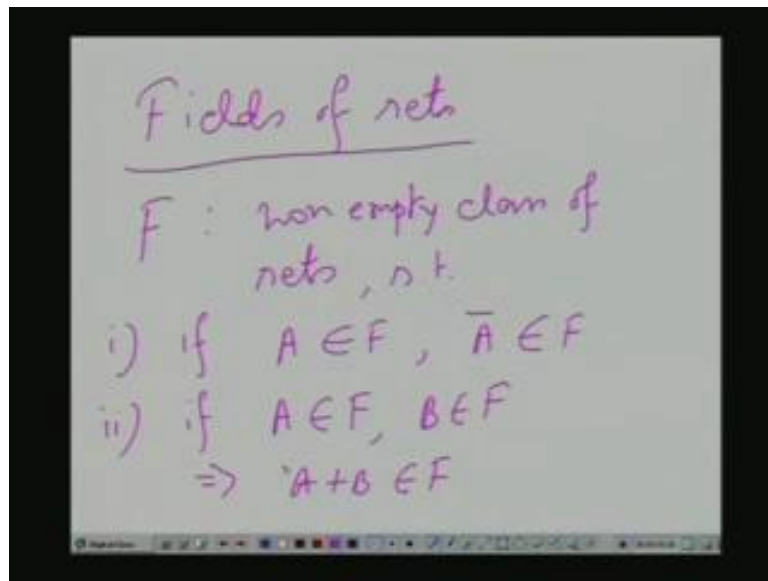 Fields of sets
F : non empty class of
sets, s t.
i) if A ∈ F, A̅ ∈ F
ii) if A ∈ F, B ∈ F
=> A + B ∈ F